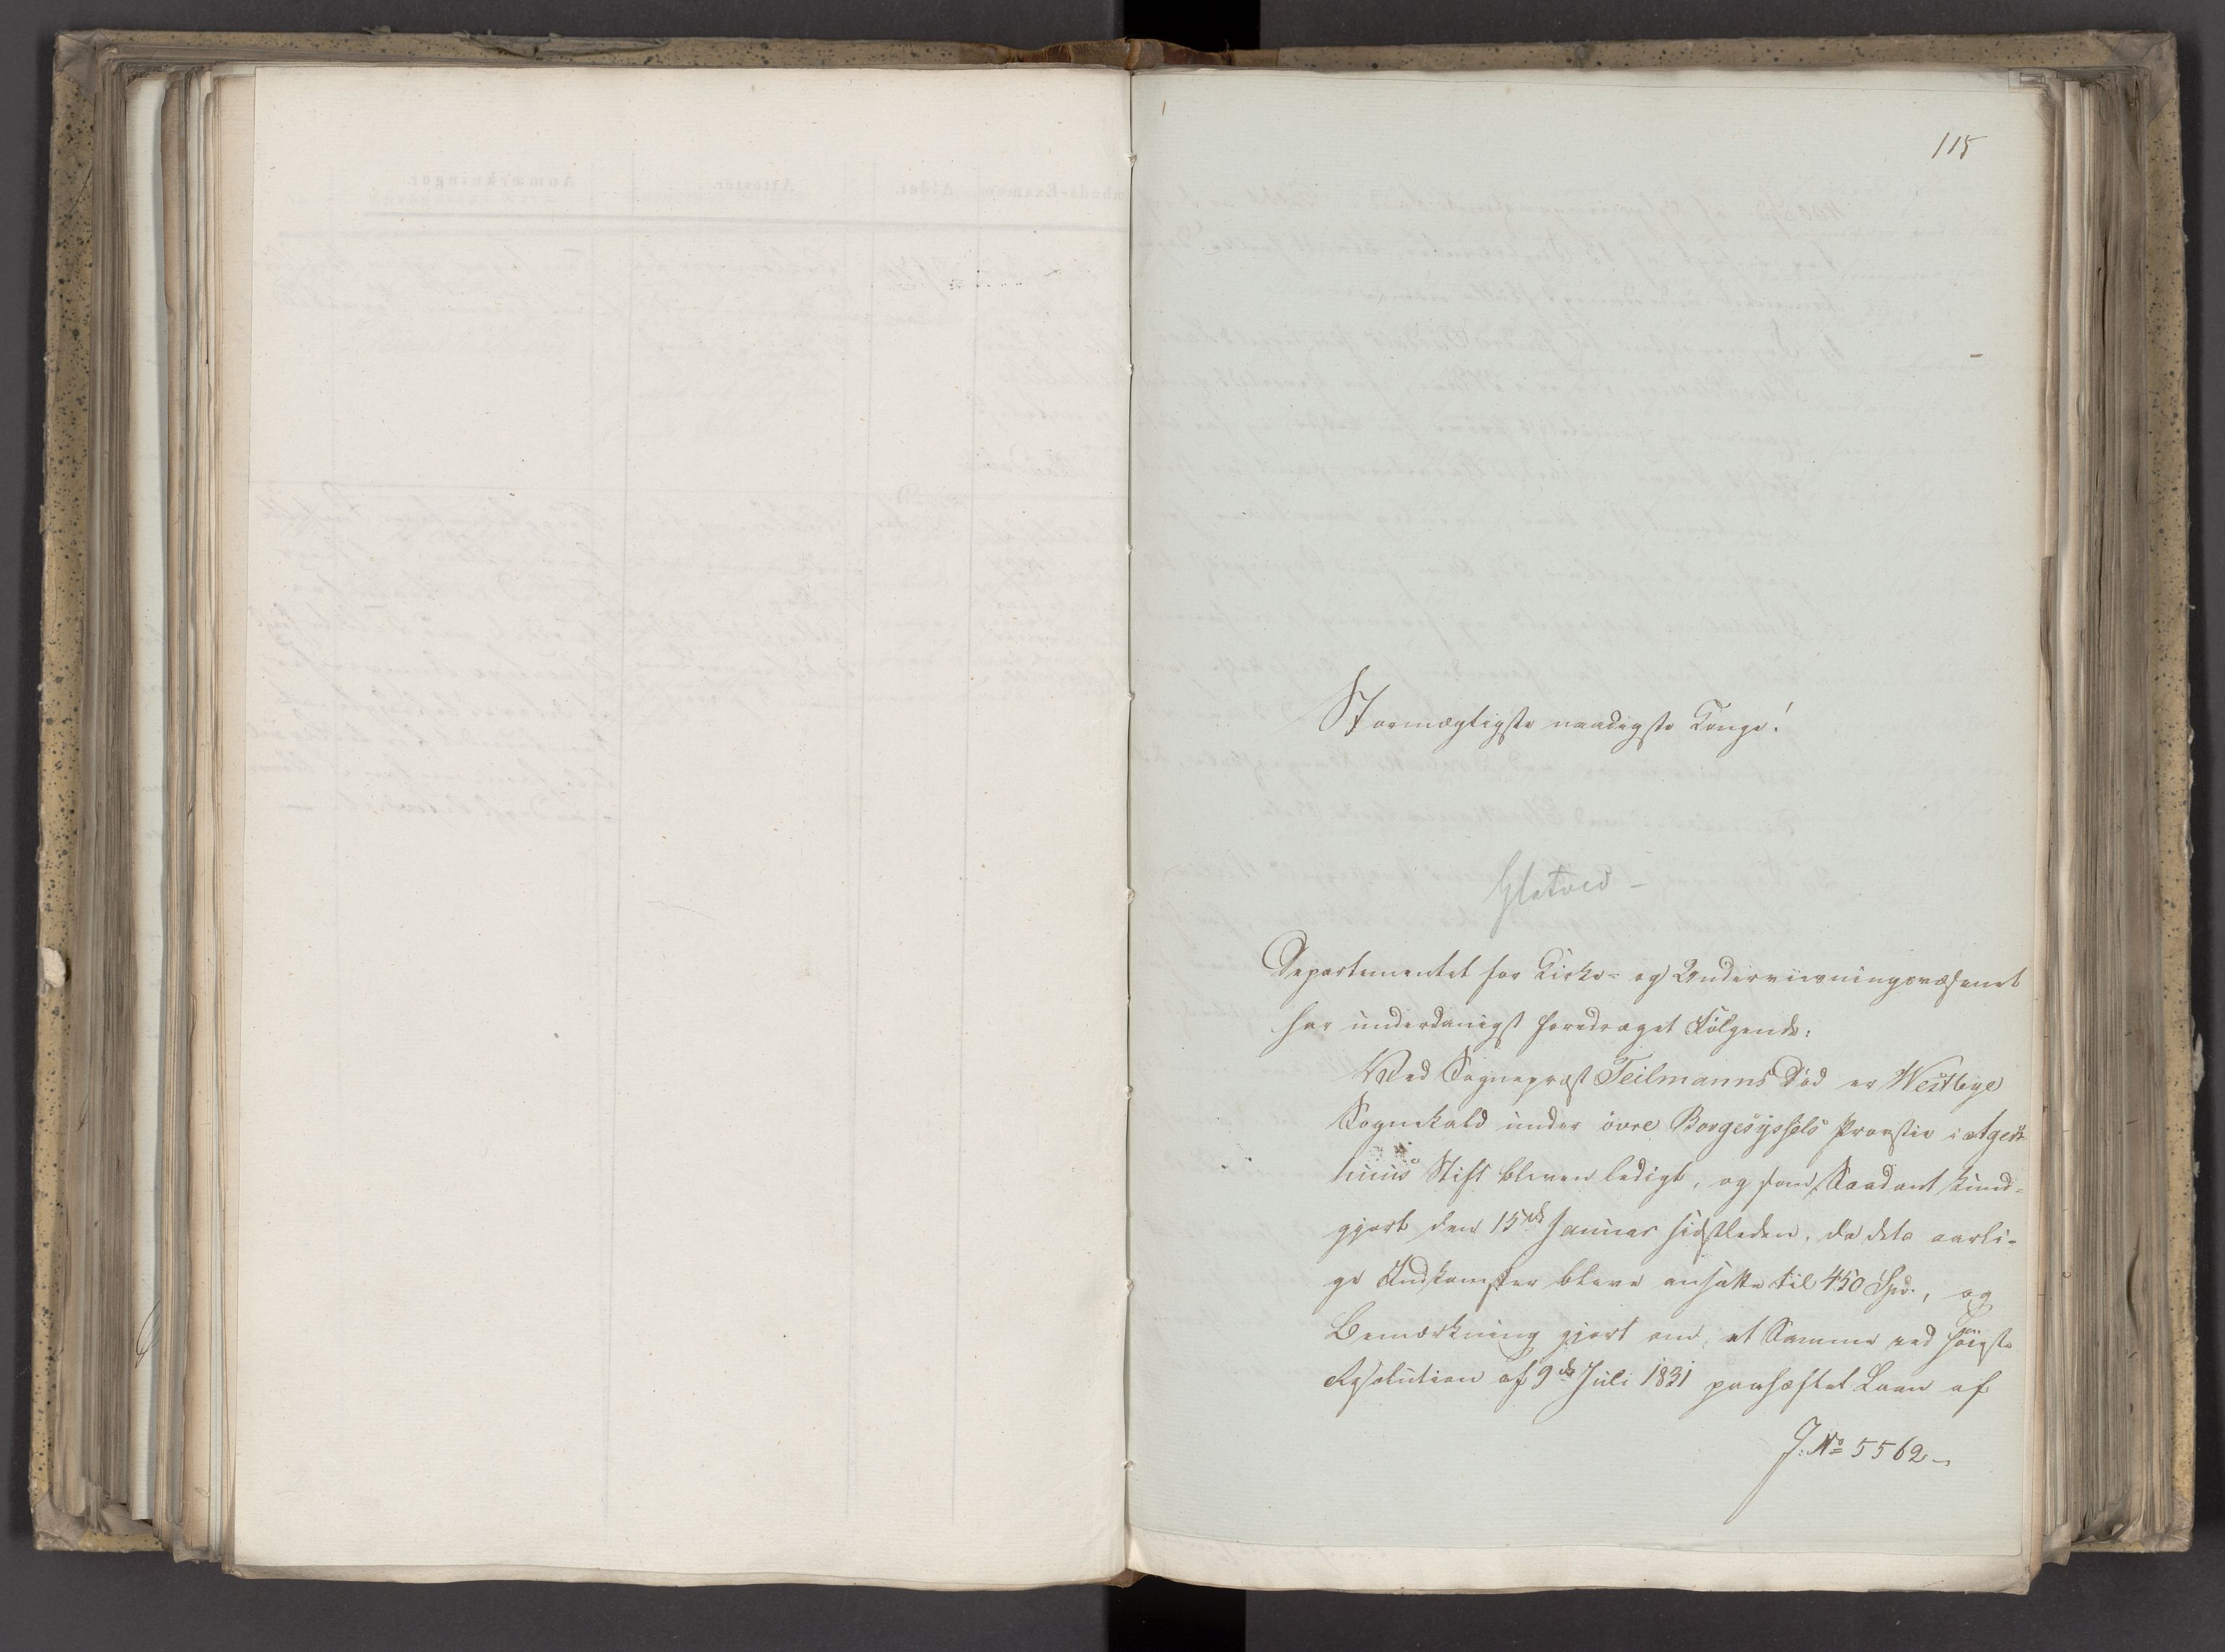 115
Stormægtigste naadigste Konge!
Departementet for Kirke- og Underviisningsvæsenet
har underdanigst foredraget Følgende:
Ved Sognepræst Teilmanns Død er Westbye
Sognekald under övre Borgesyssels Provstie i Agers-
huus Stift bleven ledigt, og som saadant kund-
gjort den 15de Januar sidstleden, da dets aarli-
ge Indkomster bleve ansatte til 450 Spd., og
Bemærkning gjort om, at Samme ved høigste
Resolution af 9de Juli 1831 paahæftet Laan af
J. No 5562